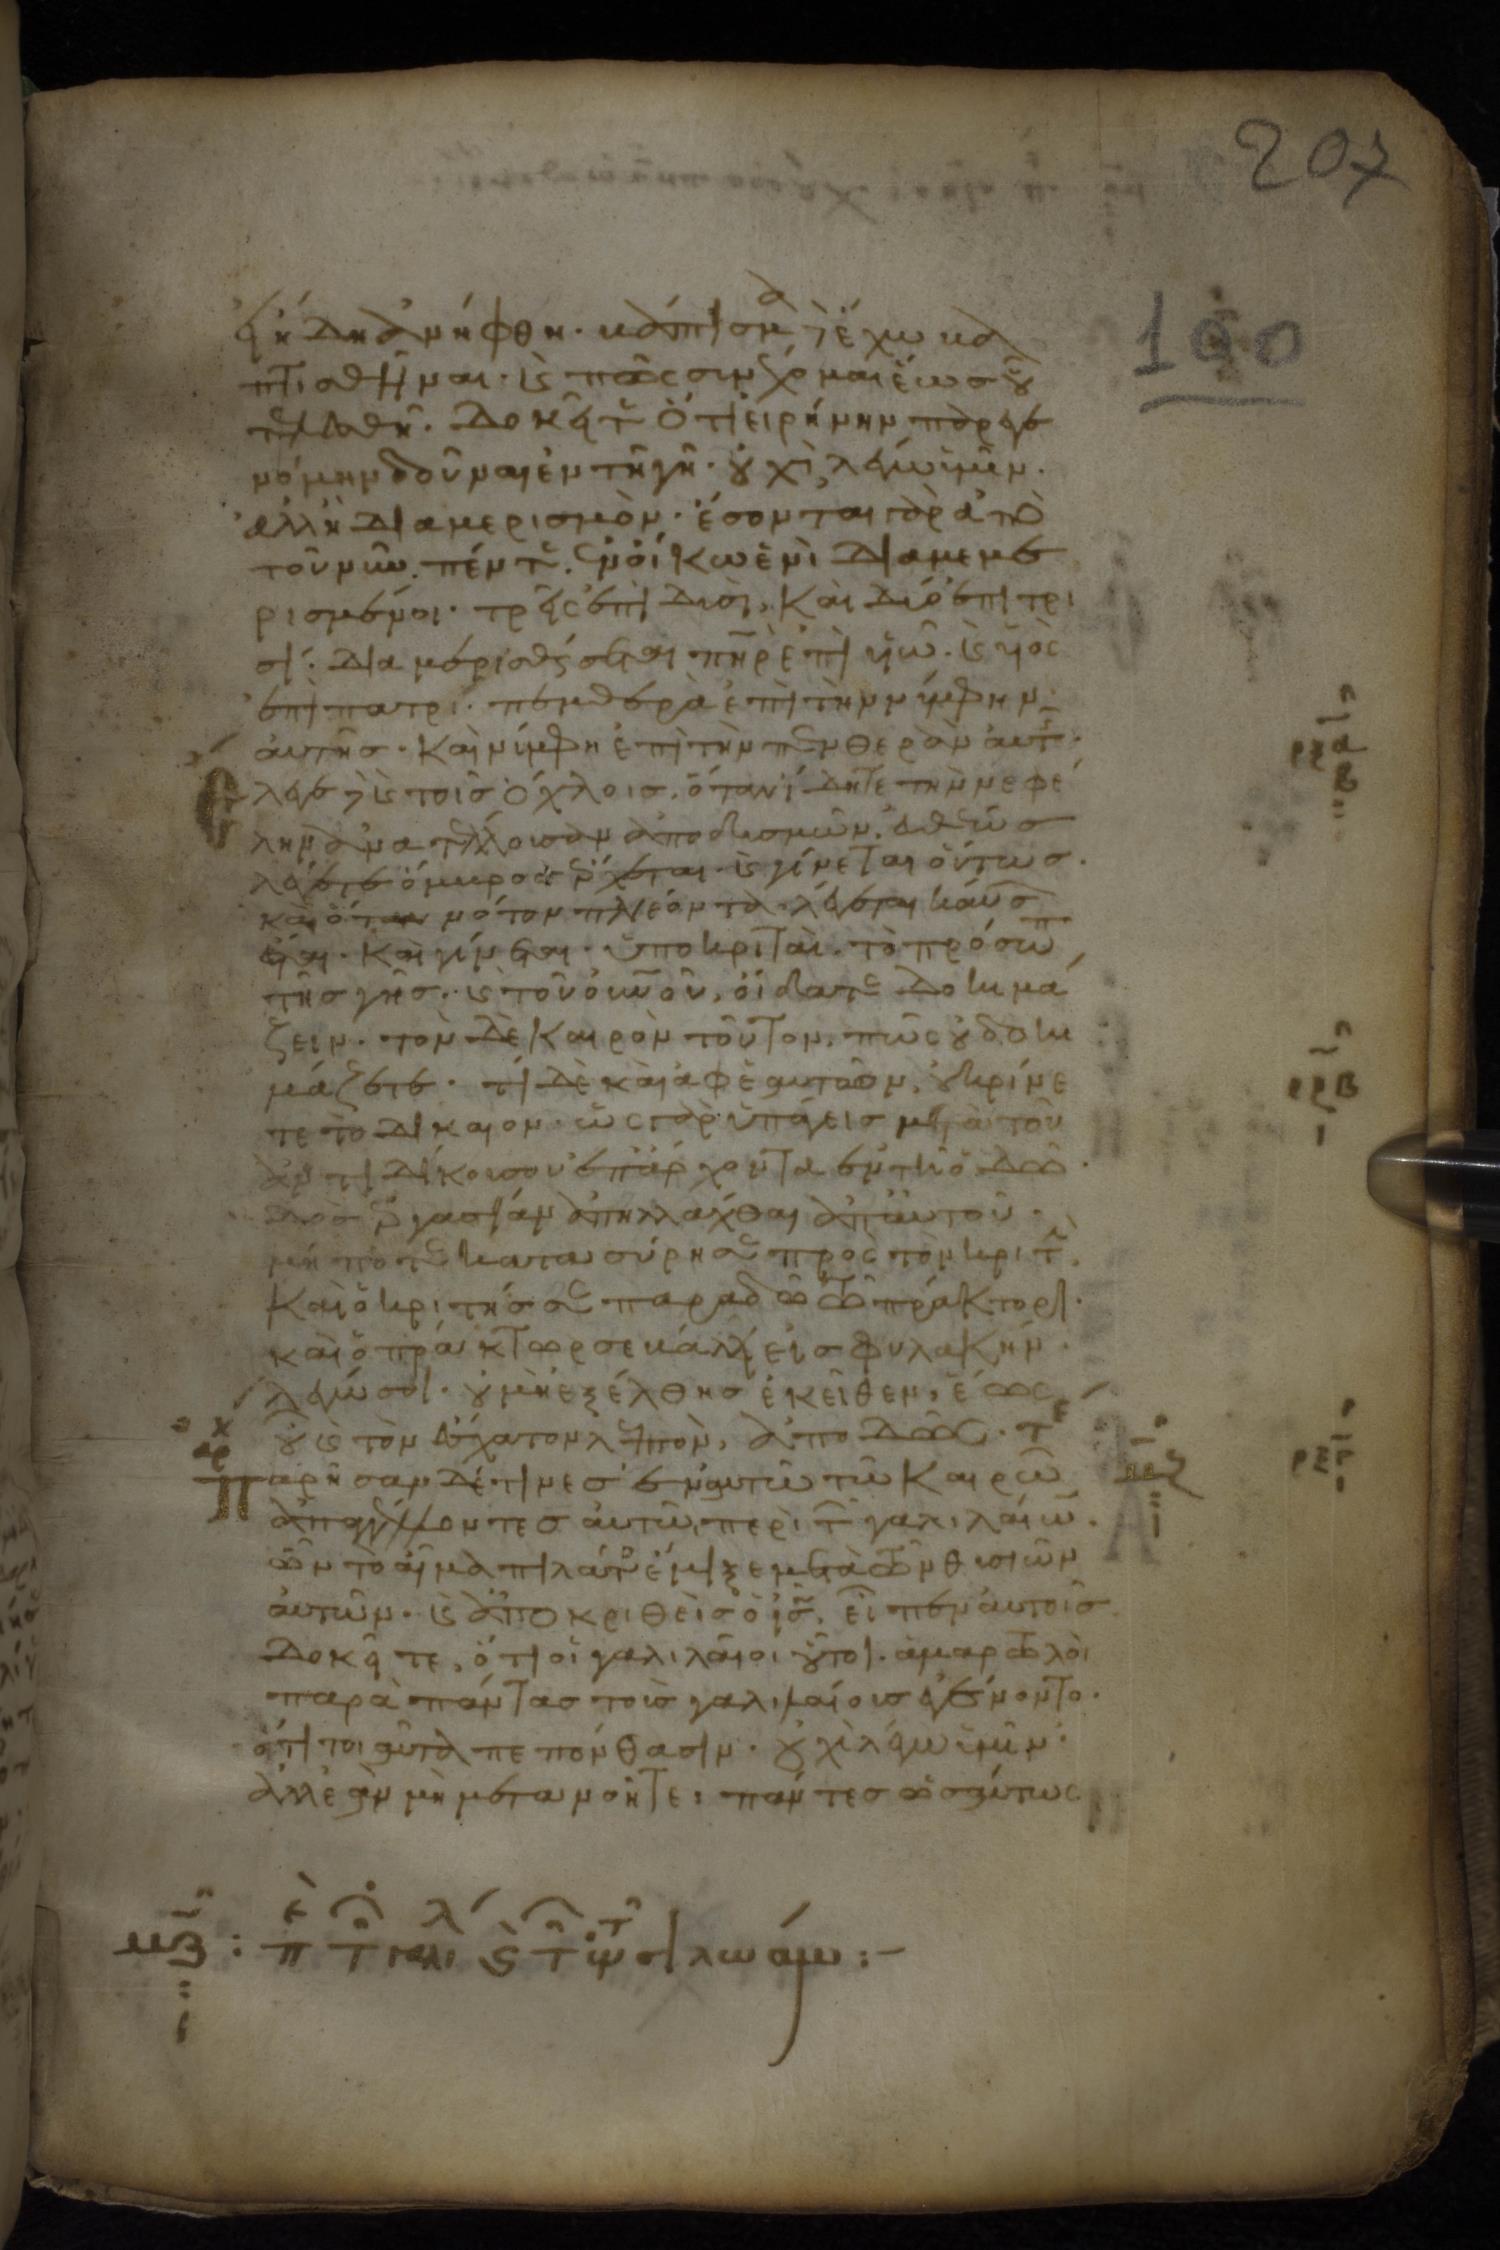 207
100
εἰ ἤδη ἀνήφθη. βάπτισμα δὲ ἔχω βα
πτισθῆναι. καὶ πῶς συνέχομαι ἕως οὗ
τελεσθῆ. δοκεῖτε ὅτι εἰρήνην παρεγε
νόμην δοῦναι ἐν τῆ γῆ. οὐχὶ λέγω ὑμῖν.
ἀλλ' ἢ διαμερισμὸν. ἔσονται γὰρ ἀπὸ
τοῦ νῦν. πέντε. ἐν οἴκω ἑνὶ διαμεμε
ρισμένοι. τρεῖς ἐπὶ δυσὶ, καὶ δύο ἐπὶ τρι
σί. διαμερισθήσεται πηρ ἐπὶ υἱῶ. καὶ υἱὸς
ἐπὶ πατρί. πενθερὰ ἐπὶ τὴν νύμφην
αὐτῆς. καὶ νύμφη ἐπὶ τὴν πενθερὰν αὐτῆς.
Ἔλεγε δὲ καὶ τοῖς ὄχλοις. ὅταν ἴδητε τὴν νεφέ
λην ἀνατέλλουσαν ἀπὸ δυσμῶν. εὐθέως
λέγετε ὄμβρος ἔρχεται. καὶ γίνεται οὕτως.
καὶ ὅταν νότον πνέοντα. λέγεται καύσ
ἔσται. καὶ γίνεται. ὑποκριταὶ. τὸ πρόσωπ
τῆς γῆς. καὶ τοῦ οὐνοῦ, οἴδατε δοκιμά
ζειν. τὸν δὲ καιρὸν τοῦτον. πῶς οὐ δοκι
μάζετε. τί δὲ καὶ ἀφ' ἑαυτῶν, οὐ κρίνε
τε τὸ δίκαιον. ὡς γὰρ ὑπάγεις μετὰ τοῦ
ἀντιδίκου σου ἐπ' ἄρχοντα ἐν τῆ ὁδῶ.
δὸς ἐργασίαν ἀπηλλάχθαι ἀπ' αὐτοῦ.
μήποτε κατασύρη σε πρὸς τὸν κριτὴν.
καὶ ὁ κριτής σε παραδῶ τῶ πράκτορι.
καὶ ὁ πράκτωρ σε βάλλη εἰς φυλακήν.
λέγω σοι. οὐ μὴ ἐξέλθης ἐκεῖθεν, ἕως
οὗ καὶ τὸν ἔσχατον λεπτὸν, ἀποδῶς. τε
Παρῆσαν δέ τινες ἐν αὐτῶ τῶ καιρῶ
ἀπαγγέλλοντες αὐτῶ, περὶ τῶν γαλιλαίων.
ὧν τὸ αἷμα πιλάτος ἔμιξεν μετὰ τῶν θυσιῶν
αὐτῶν. καὶ ἀποκριθεὶς ὁ ις, εἶπεν αὐτοῖς
δοκεῖτε, ὅτι οἱ γαλιλαῖοι οὗτοι. ἁμαρτωλοὶ
παρὰ πάντας τοὺς γαλιλαίους ἐγένοντο.
ὅτι τοιαῦτα πεπόνθασιν. οὐχὶ λέγω ὑμῖν.
ἀλλ' ἐὰν μὴ μετανοῆτε: πάντες ὡσαύτως